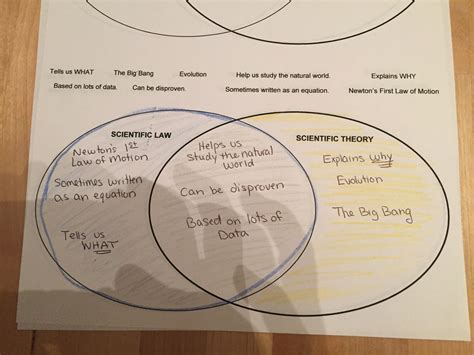 Tells us WHAT The Big Bang Evolution Help us study the natural world. Explains WHY
Based on lots of data. Can be disproven. Sometimes written as an equation. Newton's First Law of Motion
SCIENTIFIC LAW
Newton's 1st
Law of Motion
Sometimes written
as an equation
Tells us
WHAT
Helps us
study the natural
world
Can be disproven
Based on lots of
Data
SCIENTIFIC THEORY
Explains why
Evolution
The Big Bang